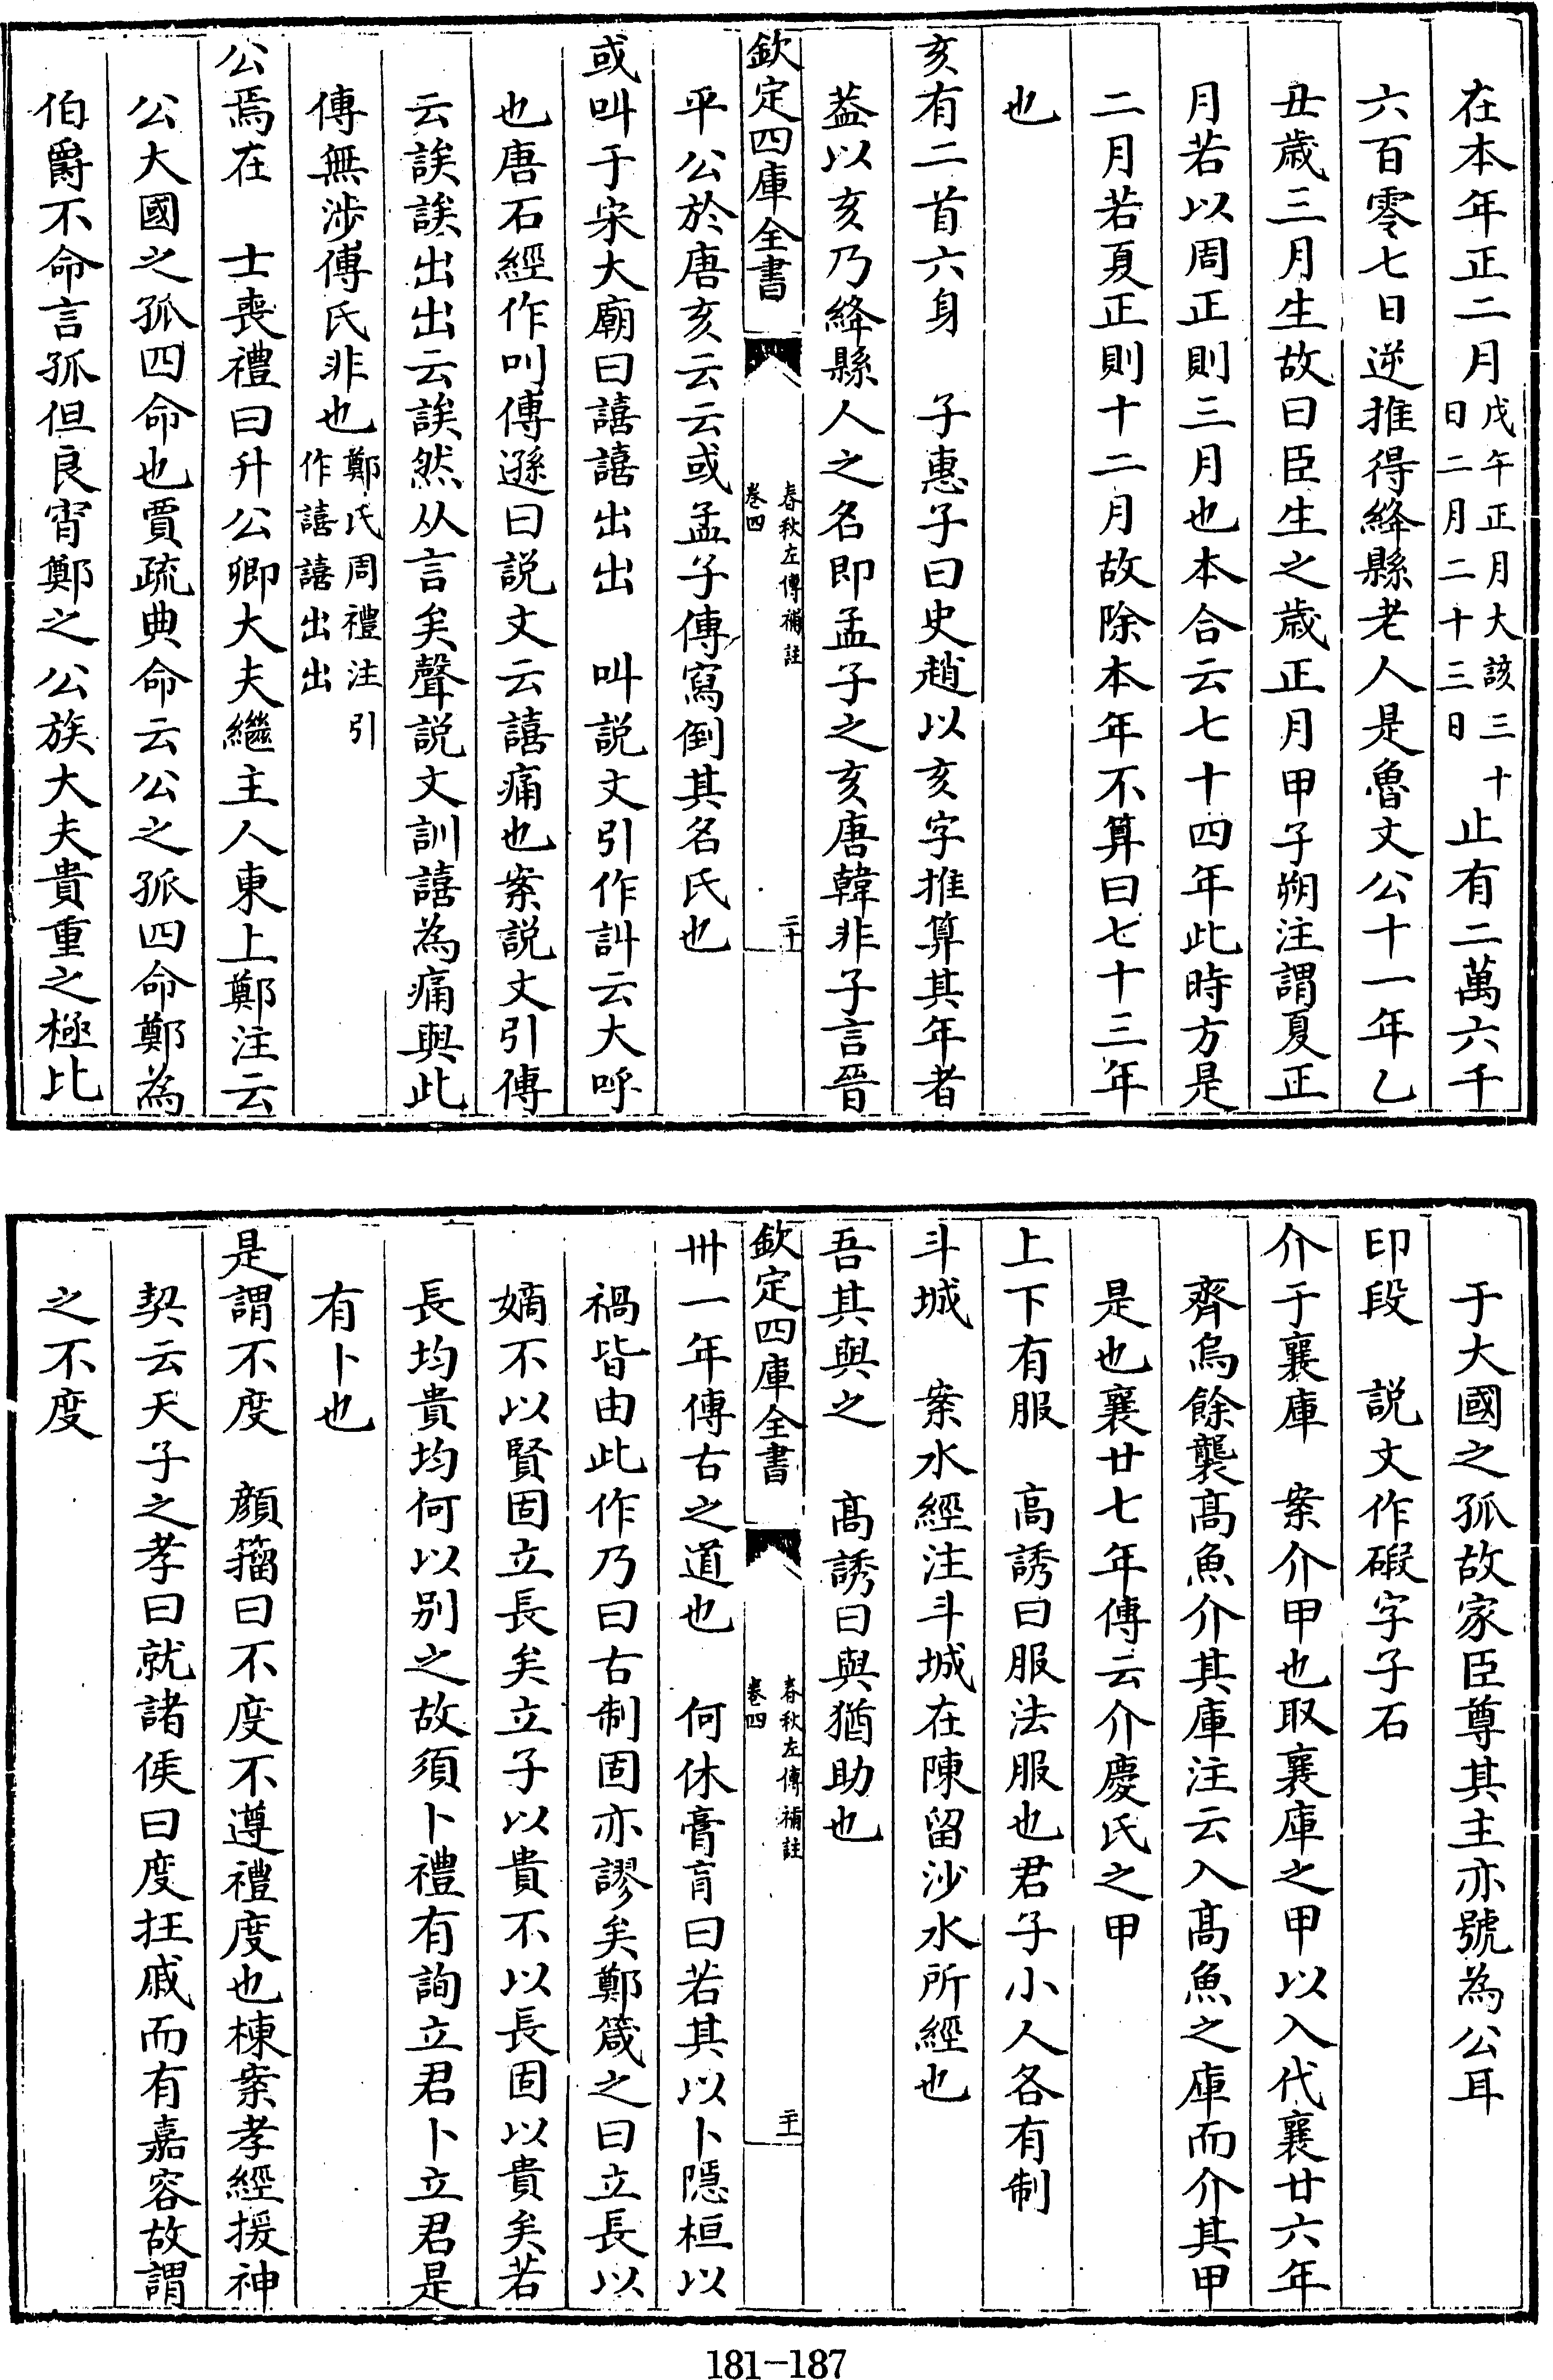 在本年正二月戊午正月大該三十日二月二十三日止有二萬六千
六百零七日逆推得絳縣老人是魯文公十一年乙
丑歲三月生故曰臣生之歲正月甲子朔注謂夏正
月若以周正則三月也本合云七十四年此時方是
二月若夏正則十二月故除本年不算曰七十三年
也
亥有二首六身　子惠子曰史趙以亥字推算其年者
葢以亥乃絳縣人之名即孟子之亥唐韓非子言晉
欽定四庫全書
春秋左傳補註
卷四
二十
平公於唐亥云云或孟子傳寫倒其名氏也
或叫于宋大廟曰譆譆出出　叫説文引作訆云大呼
也唐石經作叫傅遜曰説文云譆痛也案説文引傳
云誒誒出出云誒然从言矣聲説文訓譆為痛與此
傳無涉傅氏非也鄭氏周禮注引作譆譆出出
公焉在　士喪禮曰升公卿大夫繼主人東上鄭注云
公大國之孤四命也賈疏典命云公之孤四命鄭為
伯爵不命言孤但良宵鄭之公族大夫貴重之極比
于大國之孤故家臣尊其主亦號為公耳
印段　説文作碬字子石
介于襄庫　案介甲也取襄庫之甲以入代襄廿六年
齊烏餘襲髙魚介其庫注云入髙魚之庫而介其甲
是也襄廿七年傳云介慶氏之甲
上下有服　高誘曰服法服也君子小人各有制
斗城　案水經注斗城在陳留沙水所經也
吾其與之　髙誘曰與猶助也
欽定四庫全書
春秋左傳補註
卷四
二十一
卅一年傳古之道也　何休膏肓曰若其以卜隱桓以
禍皆由此作乃曰古制固亦謬矣鄭箴之曰立長以
嫡不以賢固立長矣立子以貴不以長固以貴矣若
長均貴均何以别之故須卜禮有詢立君卜立君是
有卜也
是謂不度　顔籀曰不度不遵禮度也棟案孝經援神
契云天子之孝曰就諸侯曰度抂戚而有嘉容故謂
之不度
181-187